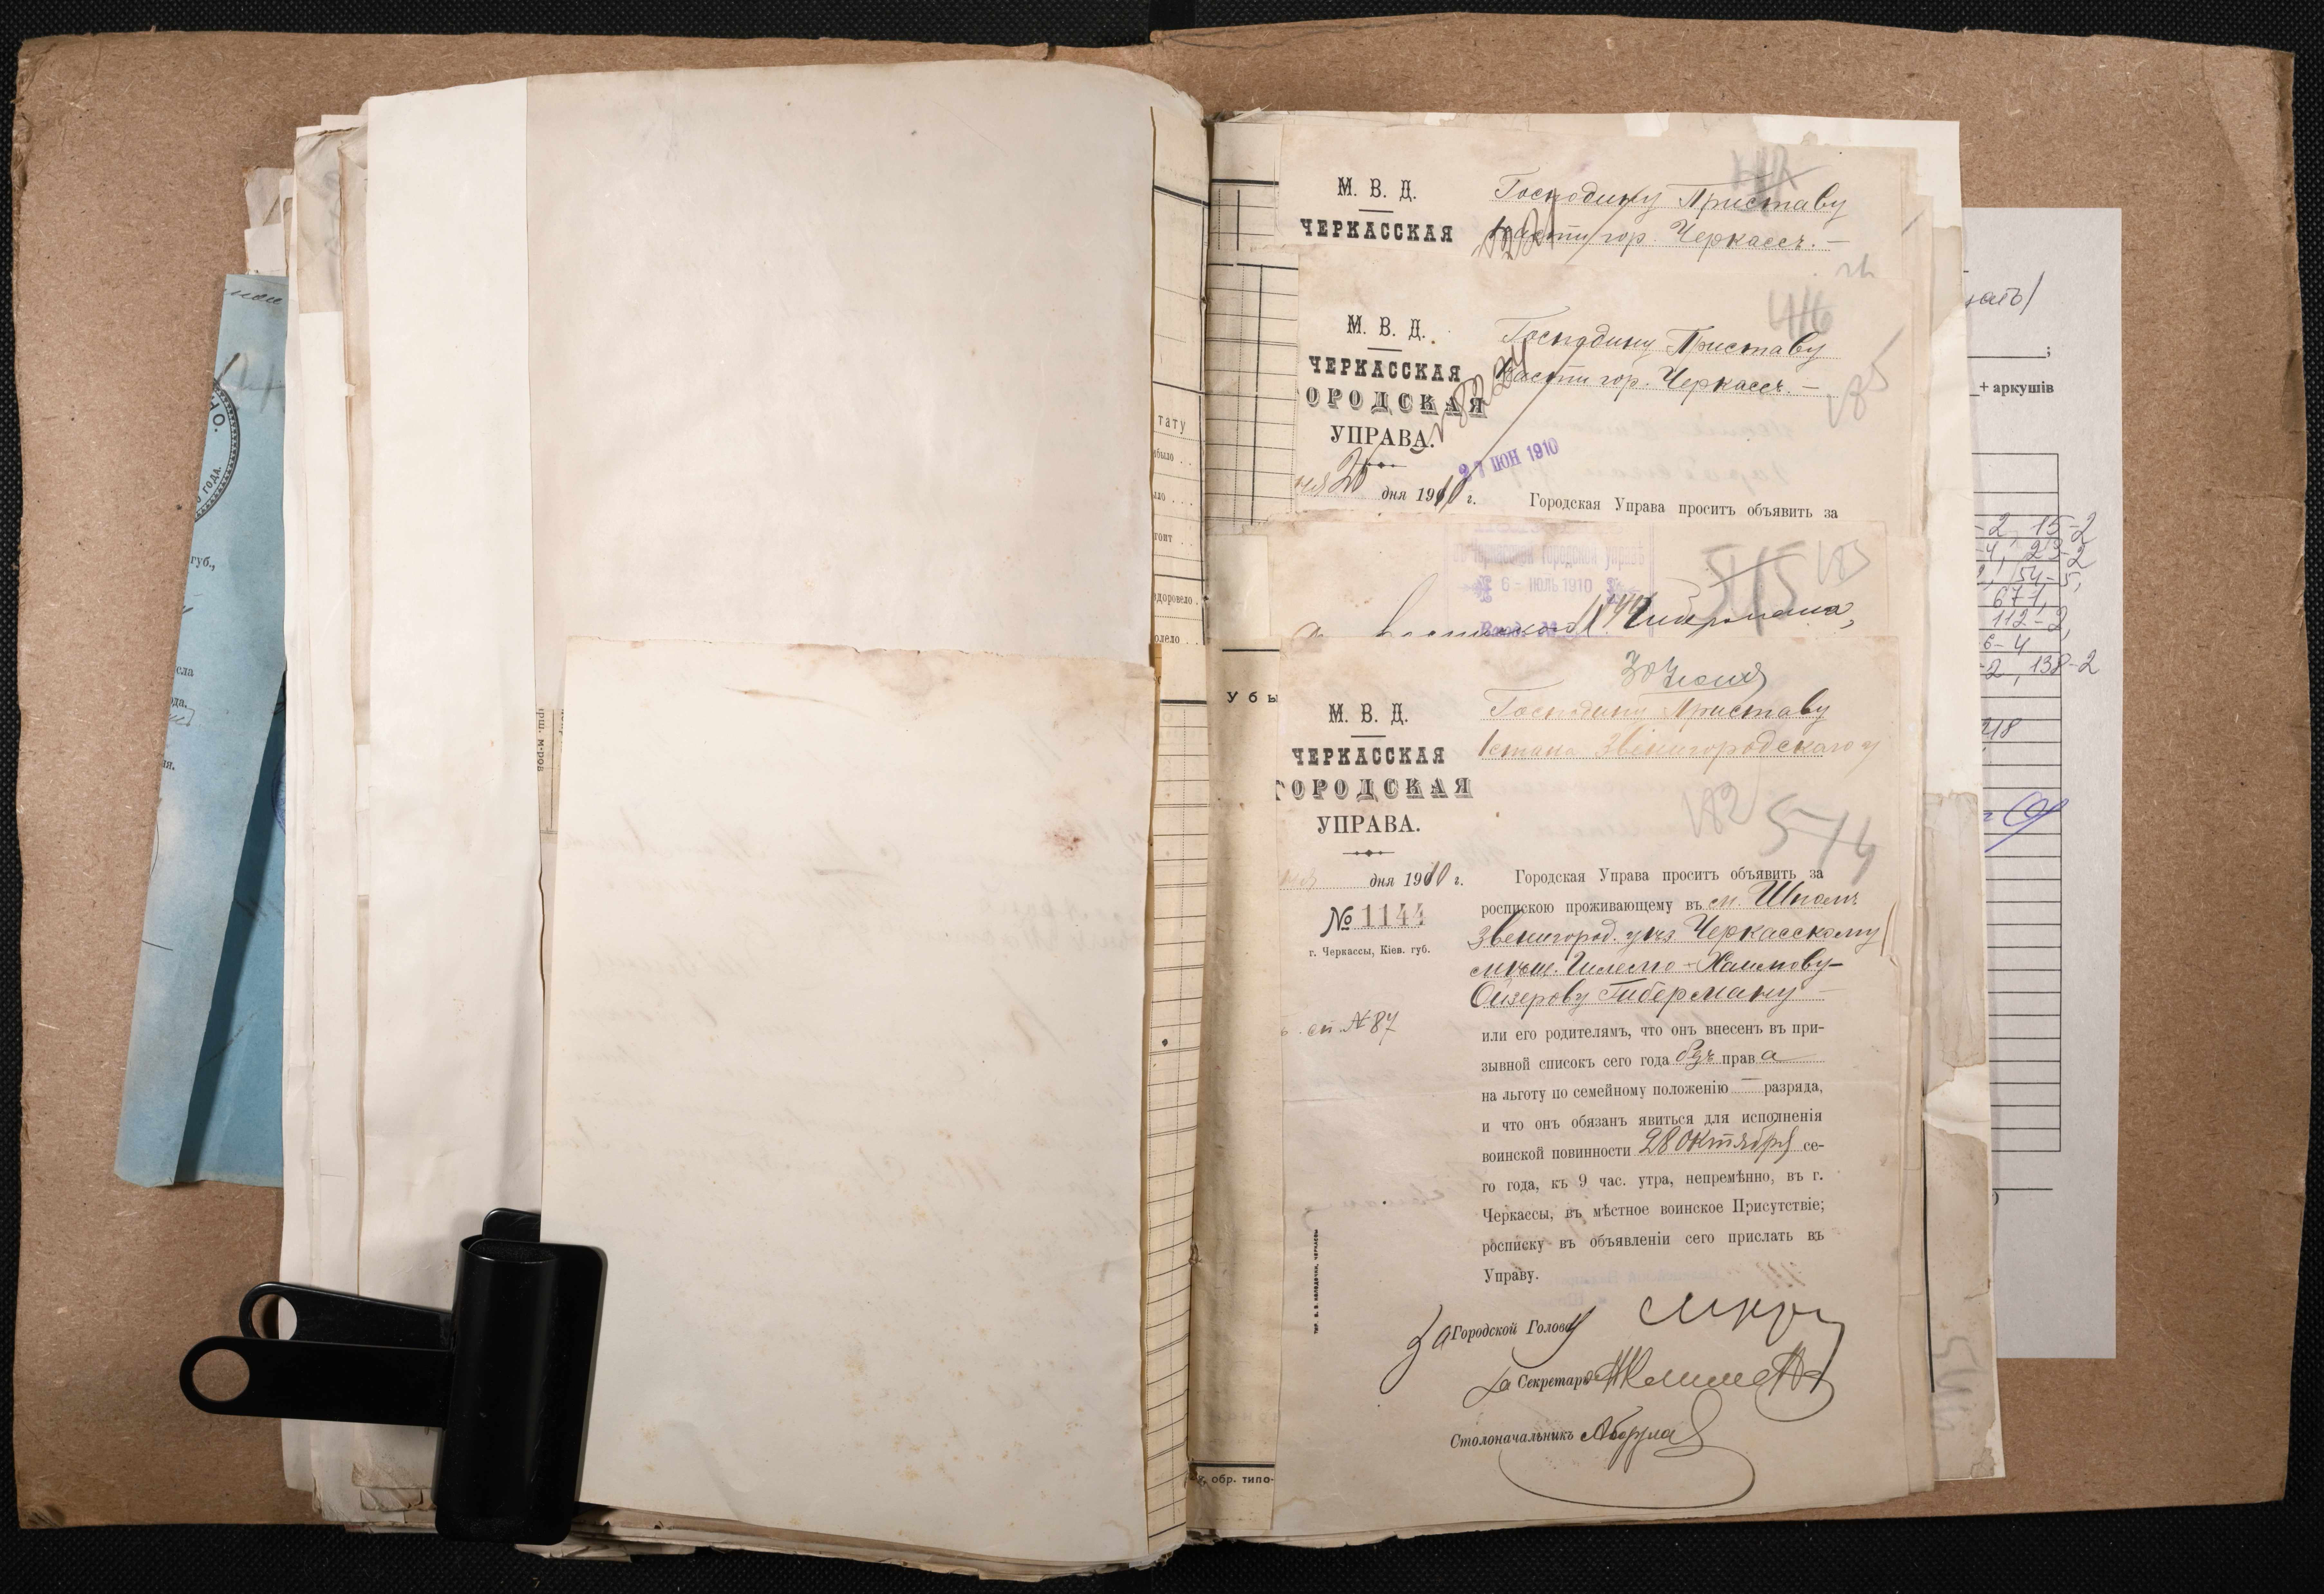 М. В. Д.
ЧЕРКАССКАЯ
Господину Приставу
части гор. Черкассъ. –
М. В. Д.
ЧЕРКАССКАЯ
ОРОДСКАЯ
УПРАВА.
Господину Приставу
части гор. Черкассъ. –
416
185
27 ІЮН 1910
20 дня 1910 г.
Городская Управа проситъ объявить за
Городской Управѣ
6 – ІЮЛЬ 1910
515 183
Гибермана,
30 Іюня
М. В. Д.
ЧЕРКАССКАЯ
ГОРОДСКАЯ
УПРАВА.
Господину Приставу
1 стана Звенигородскаго у
182 514
дня 1910 г.
№ 1144
г. Черкассы, Кіев. губ.
сп. № 87
Городская Управа проситъ объявить за
роспискою проживающему въ м. Шполѣ
Звенигород. уѣз Черкасскому
мѣщ. Шлемо-Хаимову-
Ойзерову Гиберману –
или его родителямъ, что онъ внесенъ въ при-
зывной списокъ сего года безъ права
на льготу по семейному положенію — разряда,
и что онъ обязан явиться для исполненія
воинской повинности 28 Октября се-
го года, къ 9 час. утра, непремѣнно, въ г.
Черкассы, въ мѣстное воинское Присутствіе;
росписку въ объявленіи сего прислать въ
Управу.
За Городской Голова
За Секретарь
Столоначальникъ
тату
было . .
ло . . .
тоит . .
здоровело .
олело . .
Убы
обр. типо-
О.
ГОДА.
губ.,
сла
ода.
ія.
+ аркушів
-2, 15-2
-4, 23-2
154-5,
67-1,
112-2,
6-4
-2, 138-2
218